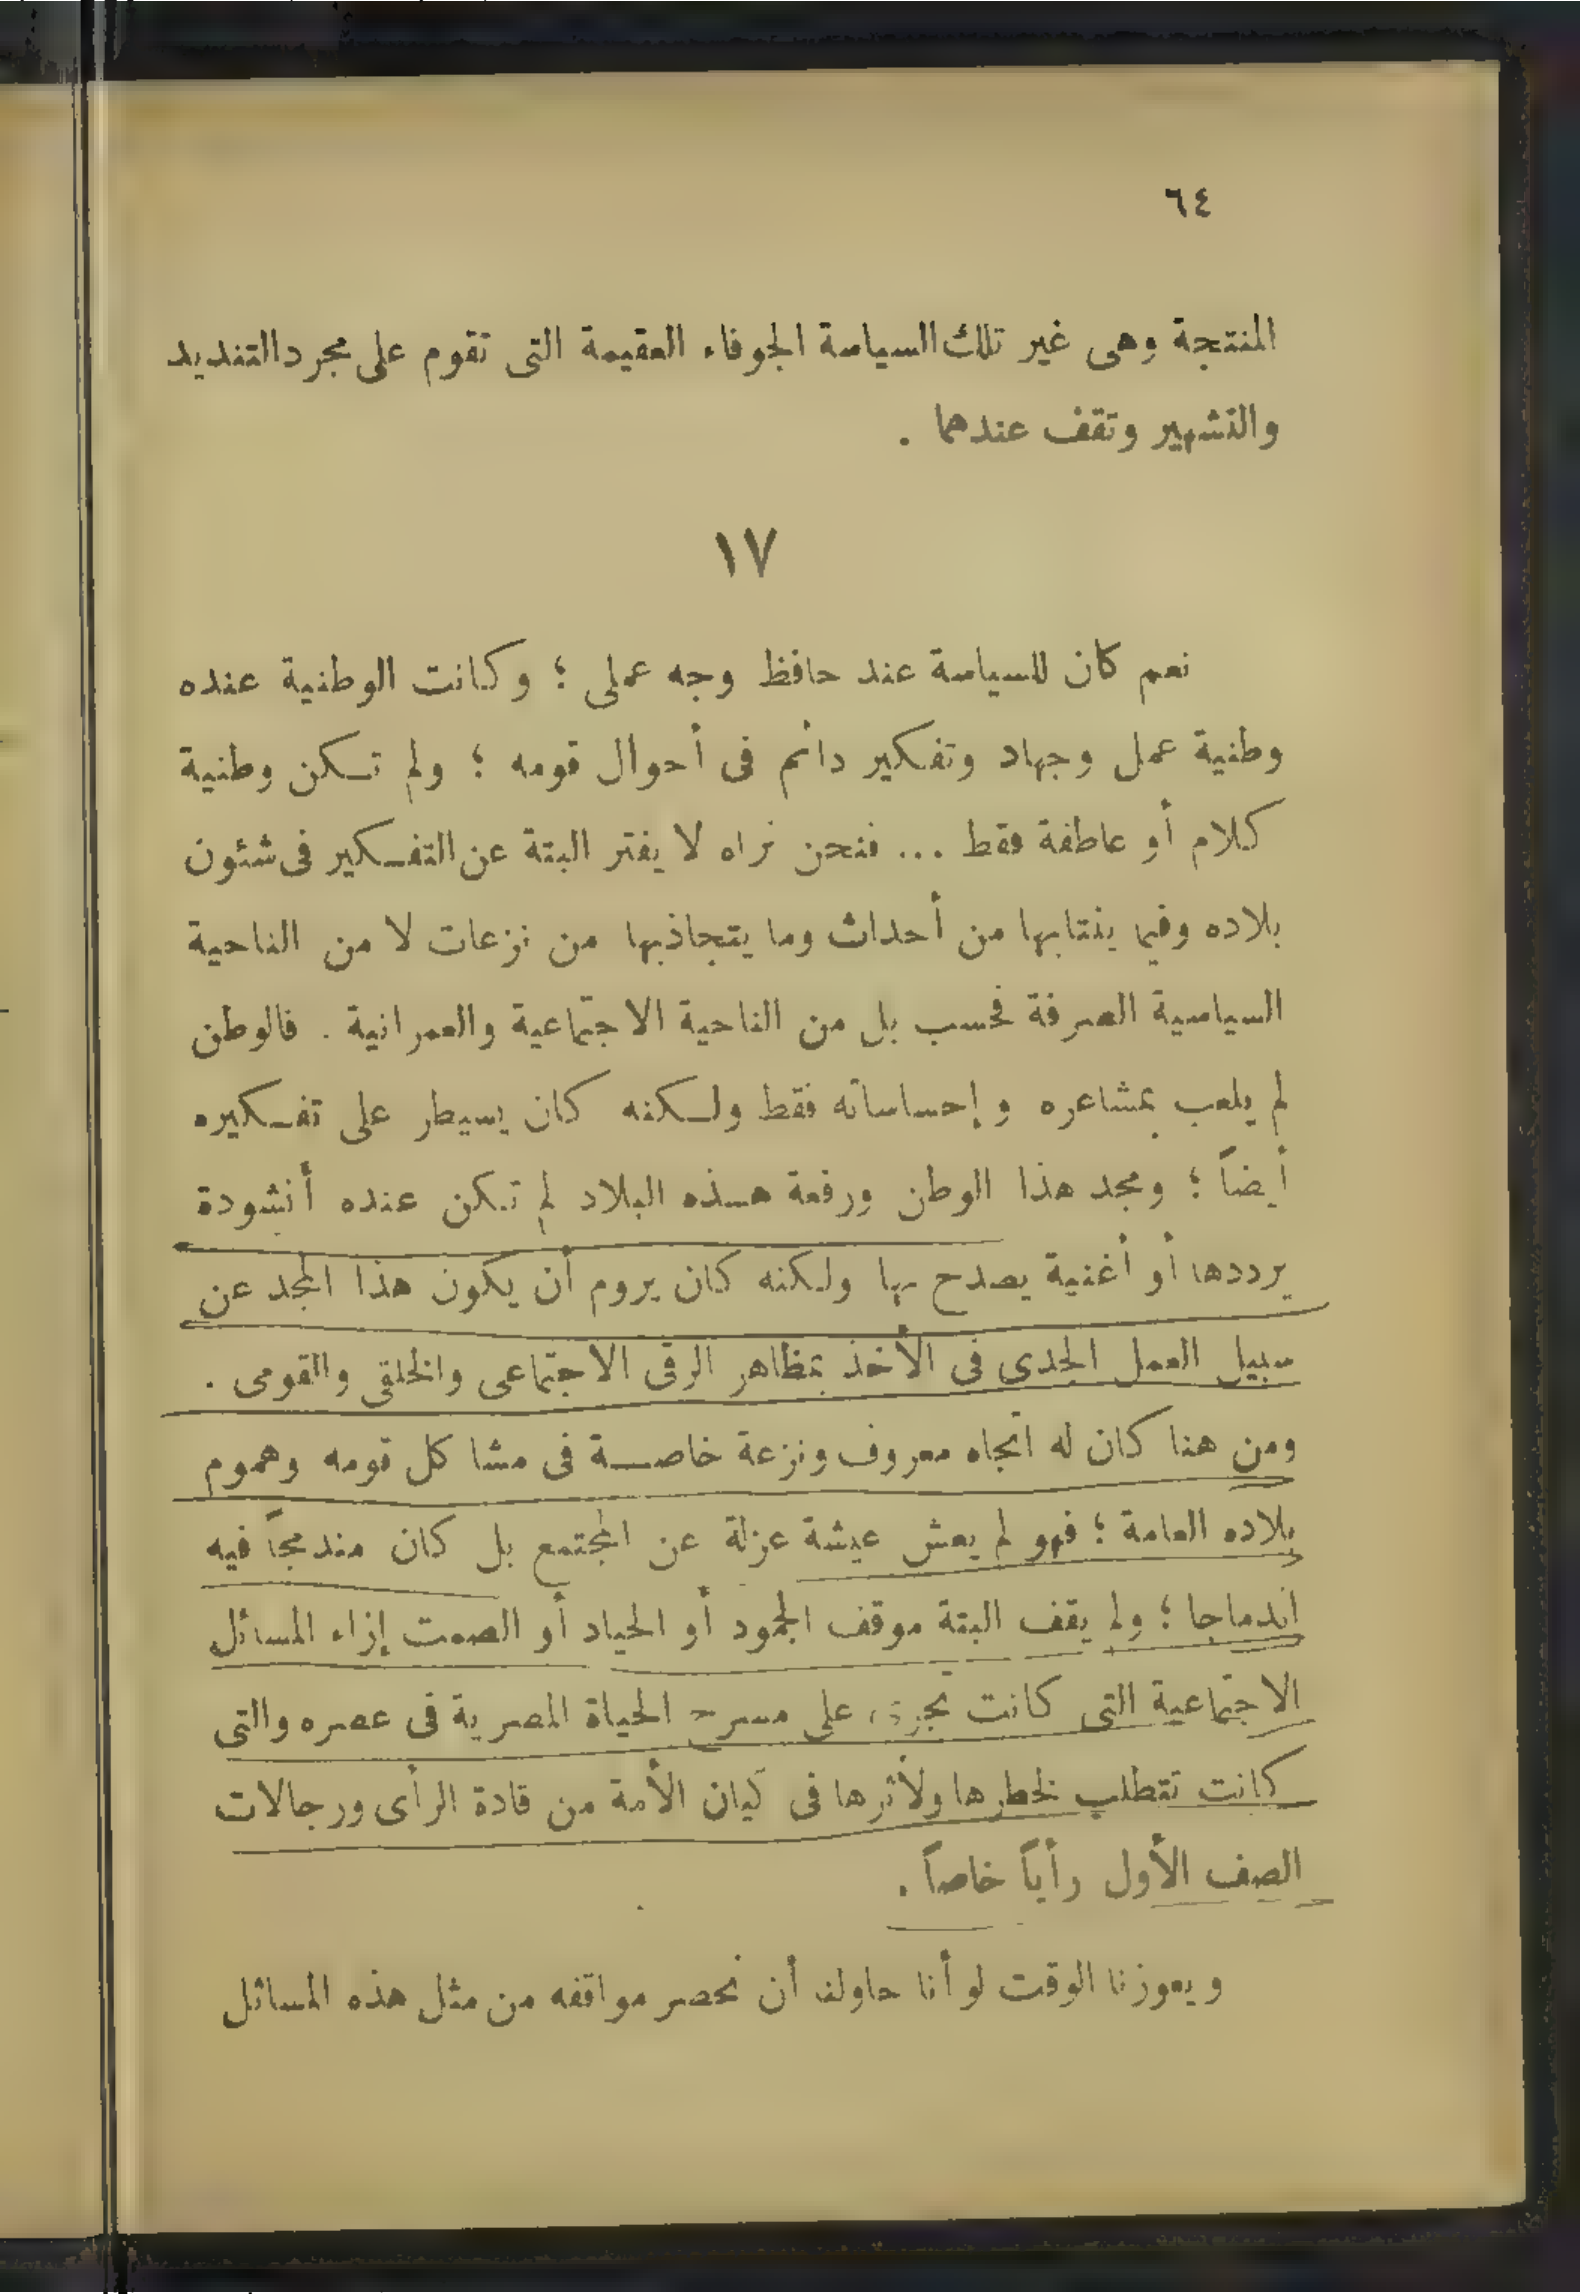 ٦٤
المنتجة وهى غير تلك السياسة الجوفاء العقيمة التى تقوم على مجرد التنديد
والتشهير وتقف عندهما .
١٧
نعم كان للسياسة عند حافظ وجه عملى ؛ وكانت الوطنية عنده
وطنية عمل وجهاد وتفكير دائم فى أحوال قومه ؛ ولم تكن وطنية
كلام أو عاطفة فقط ... فنحن نراه لا يفتر البتة عن التفكير فى شئون
بلاده وفيما ينتابها من أحداث وما يتجاذبها من نزعات لا من الناحية
السياسية الصرفة فحسب بل من الناحية الاجتماعية والعمرانية . فالوطن
لم يلعب بمشاعره وإحساساته فقط ولكنه كان يسيطر على تفكيره
أيضاً ؛ ومجد هذا الوطن ورفعة هذه البلاد لم تكن عنده أنشودة
يرددها أو أغنية يصدح بها ولكنه كان يروم أن يكون هذا المجد عن
سبيل العمل الجدى فى الأخذ بمظاهر الرقى الاجتماعى والخلقى والقومى .
ومن هنا كان له اتجاه معروف ونزعة خاصة فى مشاكل قومه وهموم
بلاده العامة ؛ فهو لم يعش عيشة عزلة عن المجتمع بل كان مندمجاً فيه
اندماجا ؛ ولم يقف البتة موقف الجمود أو الحياد أو الصمت إزاء المسائل
الاجتماعية التى كانت تجرى على مسرح الحياة المصرية فى عصره والتى
كانت تتطلب لخطرها ولأثرها فى كيان الأمة من قادة الرأى ورجالات
الصف الأول رأياً خاصاً .
ويعوزنا الوقت لو أنا حاولنا أن نحصر مواقفه من مثل هذه المسائل